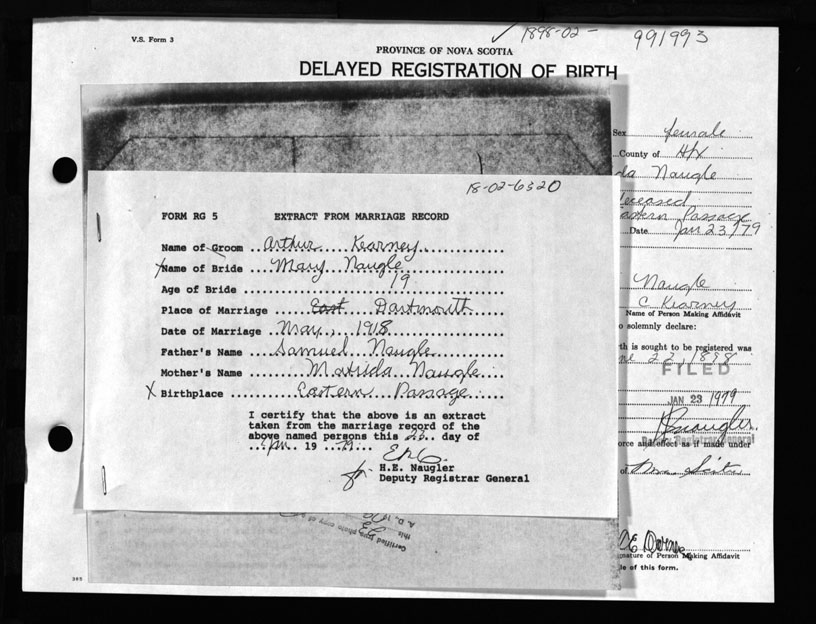 V.S. Form 3
1898-02-
991993
PROVINCE OF NOVA SCOTIA
DELAYED REGISTRATION OF BIRTH
Sex female
County of Hfx
da Naugle
deceased
astern Passage
Date Jan 23/79
Naugle
C Kearney
Name of Person Making Affidavit
o solemnly declare:
th is sought to be registered was
ne 22, 1898
FILED
JAN 23 1979
Deputy Registrar General
orce and effect as if made under
of
gnature of Person Making Affidavit
le of this form.
18-02-6320
FORM RG 5 EXTRACT FROM MARRIAGE RECORD
Name of Groom Arthur Kearney
X Name of Bride Mary Naugle
Age of Bride 19
Place of Marriage East Dartmouth
Date of Marriage May, 1918
Father's Name Samuel Naugle
Mother's Name Matilda Naugle
X Birthplace Eastern Passage
I certify that the above is an extract
taken from the marriage record of the
above named persons this 22 day of
Jan. 19 79
for H.E. Naugler
Deputy Registrar General
Certified
this
A.D. 19
385